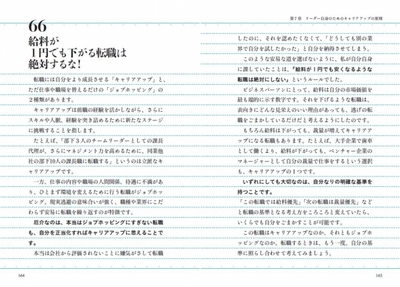 66
給料が
1円でも下がる転職は
絶対するな！
転職には自分をより成長させる「キャリアアップ」と、
ただ仕事や職場を替えるだけの「ジョブホッピング」の
2種類があります。
キャリアアップは前職の経験を活かしながら、さらに
スキルや人脈、経験を突き詰めるために新たなステージ
に挑戦することを指します。
たとえば、「部下3人のチームリーダーとしての課長
代理が、さらにマネジメント力を高めるために、同業他
社の部下10人の課長職に転職する」というのは立派なキ
ャリアアップです。
一方、仕事の内容や職場の人間関係、待遇に不満があ
り、ひとまず環境を変えるために行う転職がジョブホッ
ピング。現実逃避の意味合いが強く、職種や業界にこだ
わらず安易に転職を繰り返すのが特徴です。
厄介なのは、本当はジョブホッピングにすぎない転職
も、自分を正当化すればキャリアアップに思えることで
す。
本当は会社から評価されないことに嫌気がさして転職
184
第7章 リーダー自身のためのキャリアアップの原則
したのに、それを認めたくなくて、「どうしても別の業
界で自分を試したかった」と自分を納得させてしまう。
このような安易な道を選ばないように、私が自分自身
に課していたことは、「給料が1円でも安くなるような
転職は絶対にしない」というルールでした。
ビジネスパーソンにとって、給料は自分の市場価値を
最も端的に示す数字です。それを下げるような転職は、
表向きにどんな見栄えのいい理由があっても、逃げの転
職をごまかしているだけだと考えるようにしたのです。
もちろん給料は下がっても、裁量が増えてキャリアア
ップになる転職もあります。たとえば、大手企業で歯車
として働くより、給料が下がっても、ベンチャー企業の
マネージャーとして自分の裁量で仕事をするという選択
も、キャリアアップの1つです。
いずれにしても大切なのは、自分なりの明確な基準を
持つことです。
「この転職では給料優先」「次の転職は裁量優先」など
と転職の基準となる考え方をころころと変えていたら、
いくらでも自分をごまかすことが可能です。
この転職はキャリアアップなのか、それともジョブホ
ッピングなのか。転職するときは、もう一度、自分の基
準に照らし合わせて考えてみましょう。
185